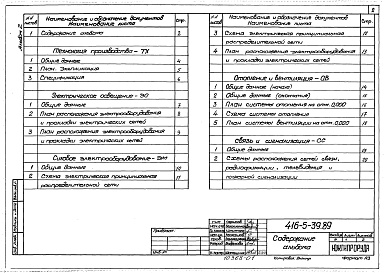 2
Альбом 2
№ листа
Наименование и обозначение документов
Наименование листа
Стр.
1 Содержание альбома 2
Технология производства - ТХ
1 Общие данные 4
2 План. Экспликация 5
3 Спецификация 6
Электрическое освещение - ЭО
1 Общие данные 7
2 План расположения электрооборудования 8
и прокладки электрических сетей
3 План расположения электрооборудования 9
и прокладки электрических сетей
Силовое электрооборудование - ЭМ
1 Общие данные 10
2 Схема электрическая принципиальная 11
распределительной сети
№ листа
Наименование и обозначение документов
Наименование листа
Стр.
3 Схема электрическая принципиальная 12
распределительной сети
4 План расположения электрооборудования 13
и прокладки электрических сетей
Отопление и вентиляция - ОВ
1 Общие данные (начало) 14
2 Общие данные (окончание) 15
3 План системы отопления на отм. 0.000 16
4 Схема системы отопления 17
5 План системы вентиляции на отм. 0.000
Связь и сигнализация - СС
1 Общие данные 19
2 Схемы расположения сетей связи, 20
радиофикации, телевидения и
пожарной сигнализации
Привязан
416-5-39.89
Содержание
альбома
ГИПРОПРУД
Формат А3